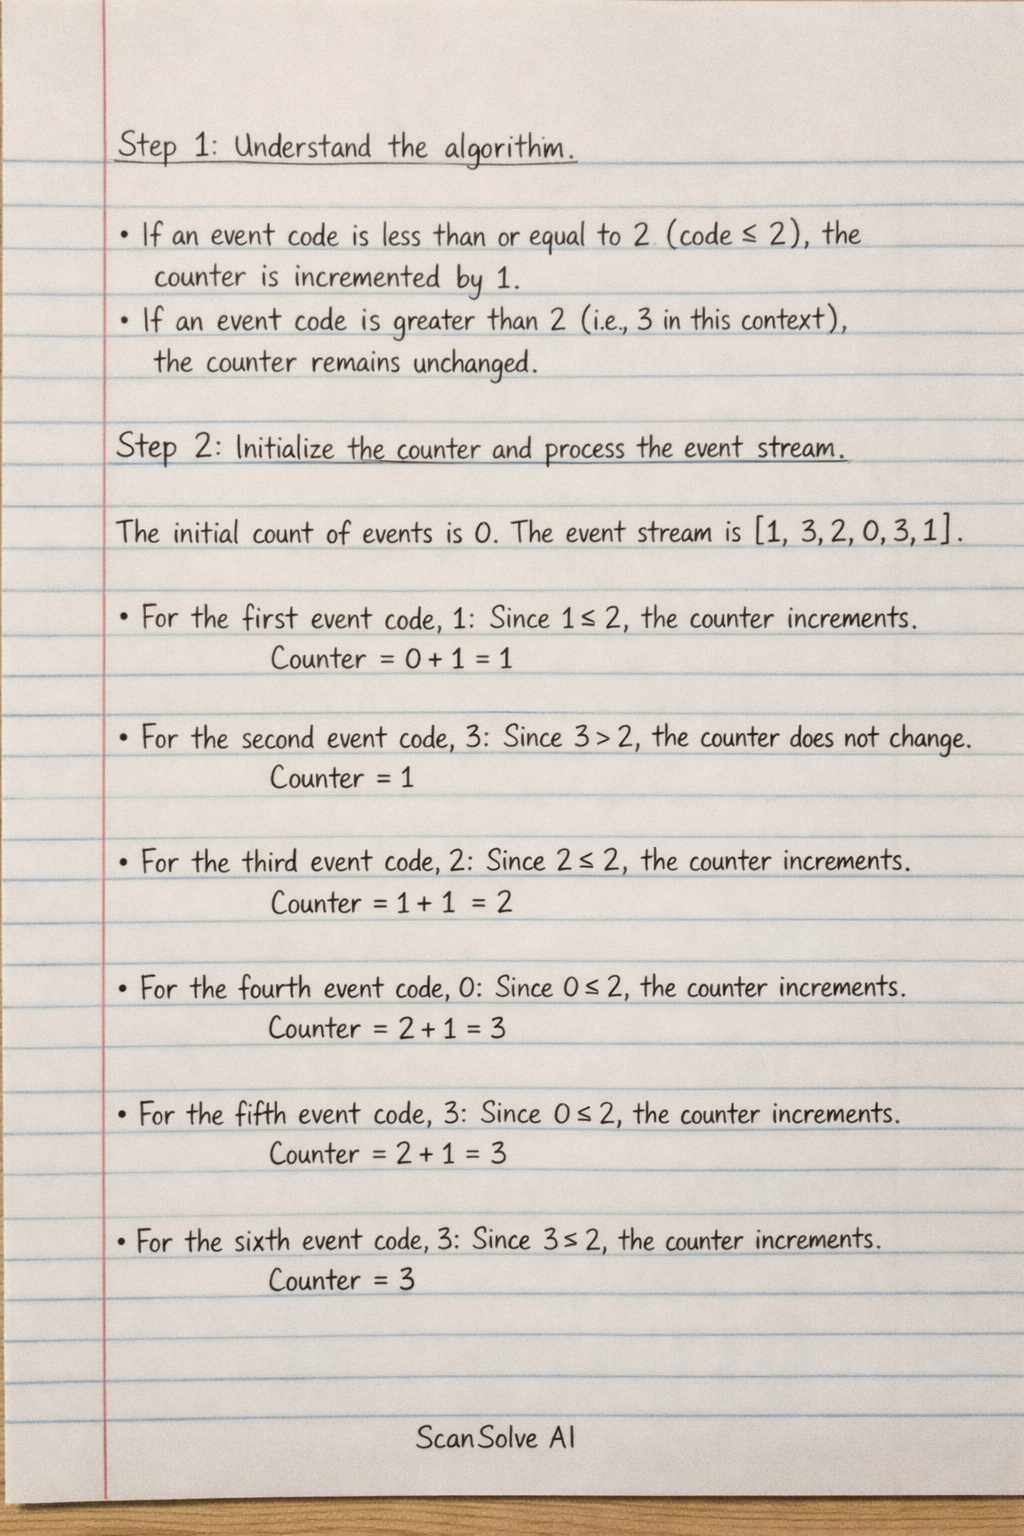 Step 1: Understand the algorithm.
• If an event code is less than or equal to 2 (code ≤ 2), the
counter is incremented by 1.
• If an event code is greater than 2 (i.e., 3 in this context),
the counter remains unchanged.
Step 2: Initialize the counter and process the event stream.
The initial count of events is 0. The event stream is [1, 3, 2, 0, 3, 1].
• For the first event code, 1: Since 1 ≤ 2, the counter increments.
Counter = 0 + 1 = 1
• For the second event code, 3: Since 3 > 2, the counter does not change.
Counter = 1
• For the third event code, 2: Since 2 ≤ 2, the counter increments.
Counter = 1 + 1 = 2
• For the fourth event code, 0: Since 0 ≤ 2, the counter increments.
Counter = 2 + 1 = 3
• For the fifth event code, 3: Since 0 ≤ 2, the counter increments.
Counter = 2 + 1 = 3
• For the sixth event code, 3: Since 3 ≤ 2, the counter increments.
Counter = 3
ScanSolve AI